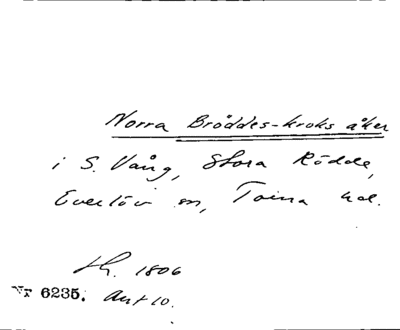 Norra Bröddes-kroks åker
i S. Vång, Stora Rödde,
Everlöv sn, Torna hd.
Lh. 1806
Nr 6235. Akt 10.